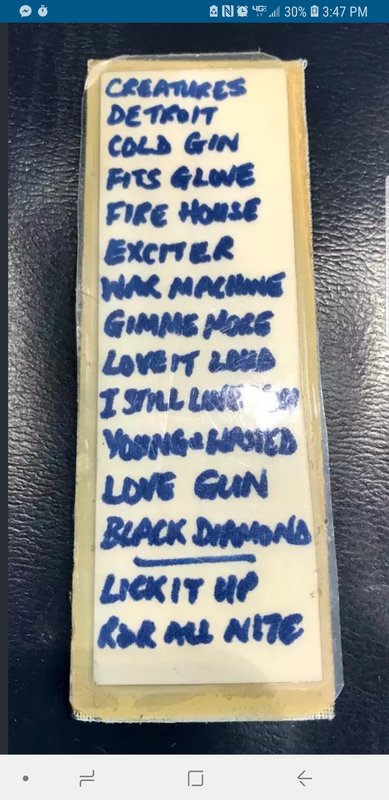 4G 30% 3:47 PM
CREATURES
DETROIT
COLD GIN
FITS GLOVE
FIRE HOUSE
EXCITER
WAR MACHINE
GIMME MORE
LOVE IT LOUD
I STILL LOVE YOU
YOUNG & WASTED
LOVE GUN
BLACK DIAMOND
LICK IT UP
R&R ALL NITE